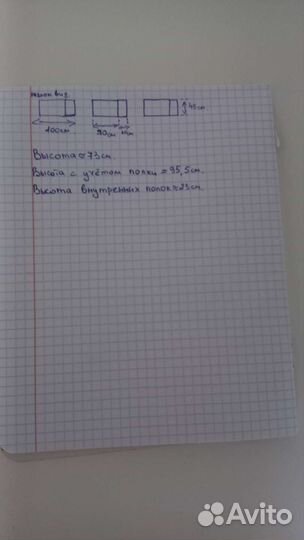 вид
45см
100см 90см
Высота = 73см
Высота с учётом полки = 95,5см.
Высота внутренних полок = 23см.
Avito